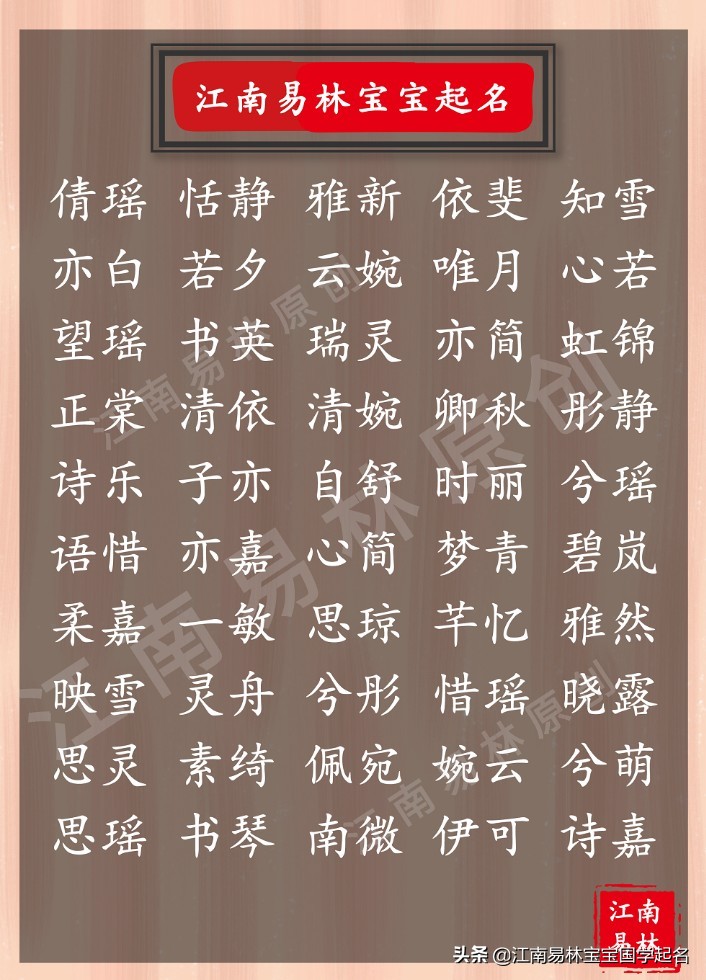 江南易林宝宝起名
倩瑶 恬静 雅新 依斐 知雪
亦白 若夕 云婉 唯月 心若
望瑶 书英 瑞灵 亦简 虹锦
正棠 清依 清婉 卿秋 彤静
诗乐 子亦 自舒 时丽 兮瑶
语惜 亦嘉 心简 梦青 碧岚
柔嘉 一敏 思琼 芊忆 雅然
映雪 灵舟 兮彤 惜瑶 晓露
思灵 素绮 佩宛 婉云 兮萌
思瑶 书琴 南微 伊可 诗嘉
江南易林原创
江南易林原创
江南易林原创
江南
易林
头条 @江南易林宝宝国学起名